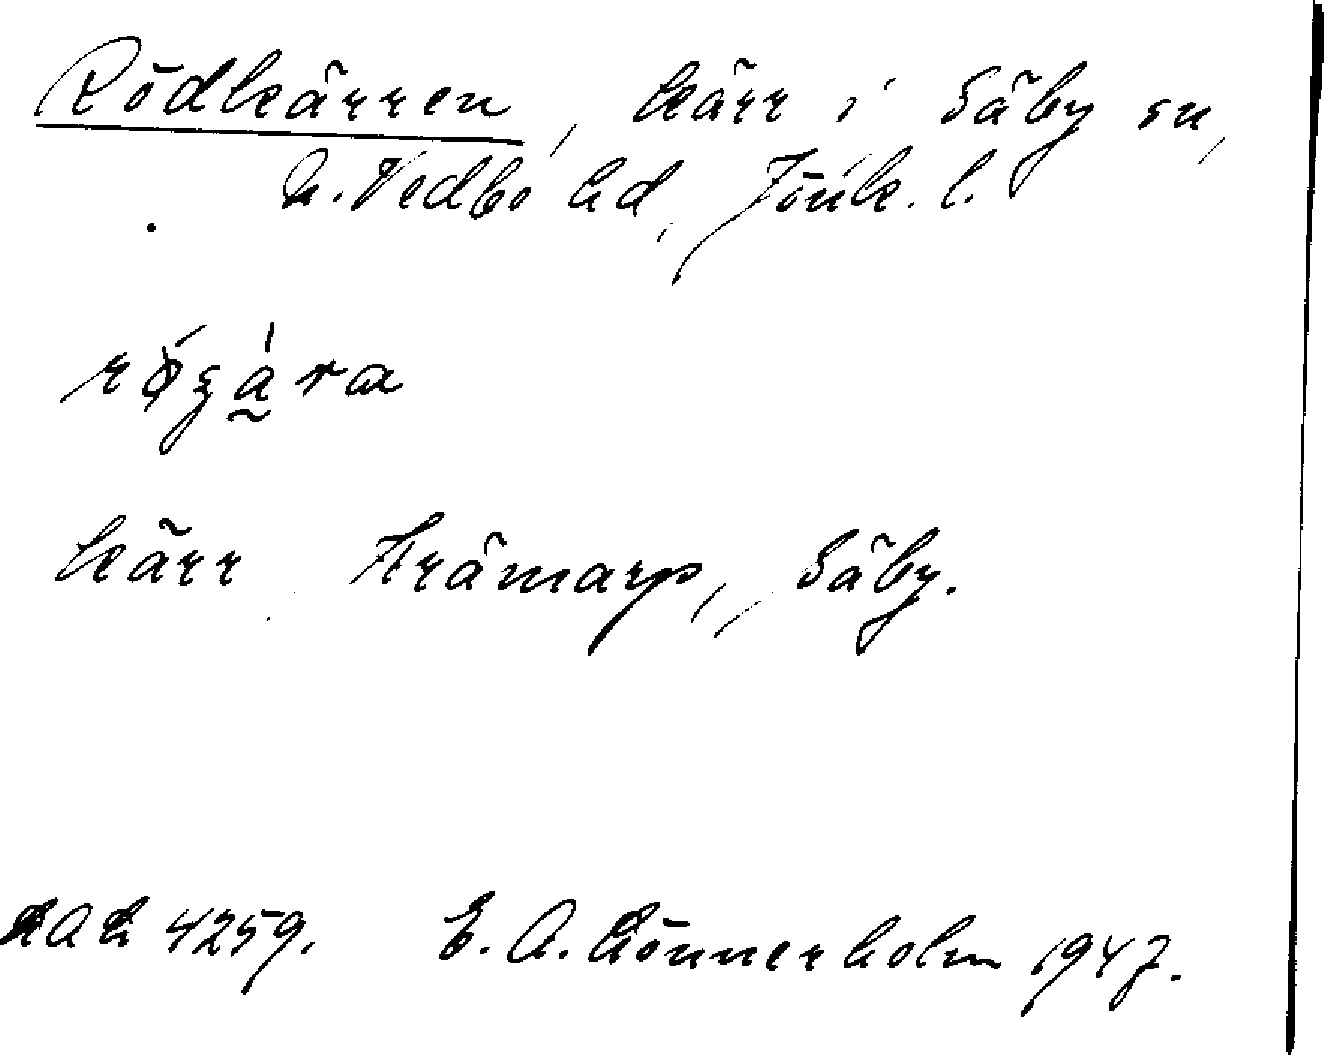 Rödkärren, kärr i Säby sn,
N. Vedbo hd, Jönk. l.
kärr Främarp, Säby.
4259. E. A. Lönnerholm 1947.